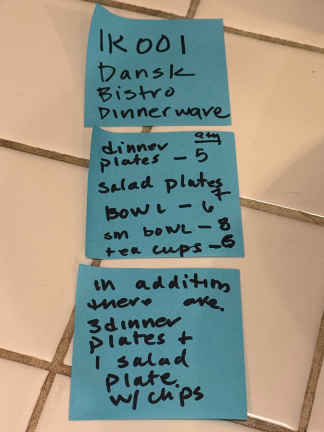 IK001
Dansk
Bistro
Dinnerware
qty
dinner
plates - 5
salad plates
7
BOWL - 6
sm bowl - 8
tea cups - 6
in addition
there are
3 dinner
plates +
1 salad
plate.
w/ chips